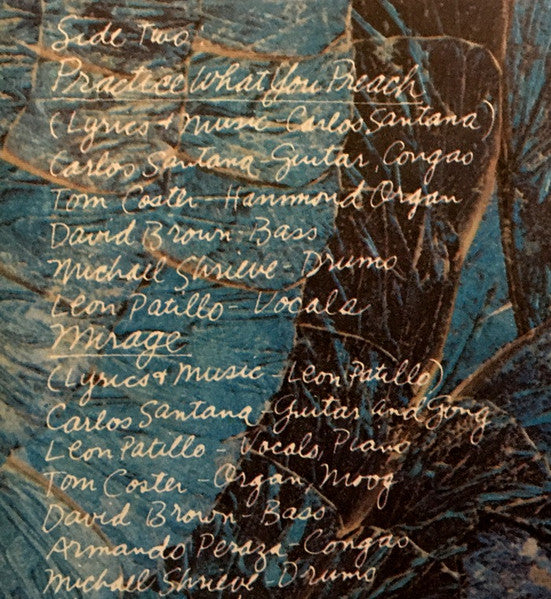 Side Two
Practice What You Preach
(Lyrics & Music - Carlos Santana)
Carlos Santana - Guitar, Congas
Tom Coster - Hammond Organ
David Brown - Bass
Michael Shrieve - Drums
Leon Patillo - Vocals
Mirage
(Lyrics & Music - Leon Patillo)
Carlos Santana - Guitar and Gong
Leon Patillo - Vocals, Piano
Tom Coster - Organ, Moog
David Brown - Bass
Armando Peraza - Congas
Michael Shrieve - Drums